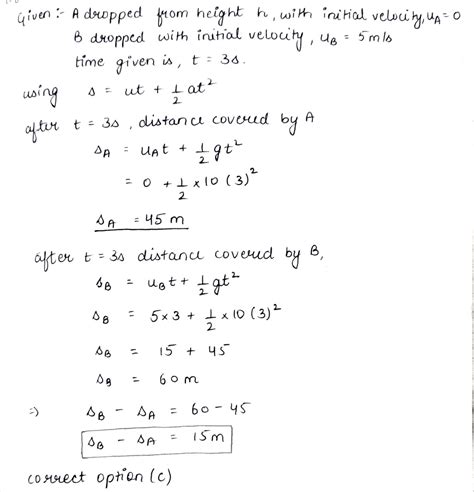 Given :- A dropped from height h, with initial velocity, u_A = 0
B dropped with initial velocity, u_B = 5 m/s
time given is, t = 3s.
using s = ut + 1/2 at²
after t = 3s, distance covered by A
s_A = u_A t + 1/2 gt²
= 0 + 1/2 × 10 (3)²
s_A = 45 m
after t = 3s distance covered by B,
s_B = u_B t + 1/2 gt²
s_B = 5×3 + 1/2 × 10 (3)²
s_B = 15 + 45
s_B = 60 m
=) s_B - s_A = 60 - 45
s_B - s_A = 15 m
correct option (c)